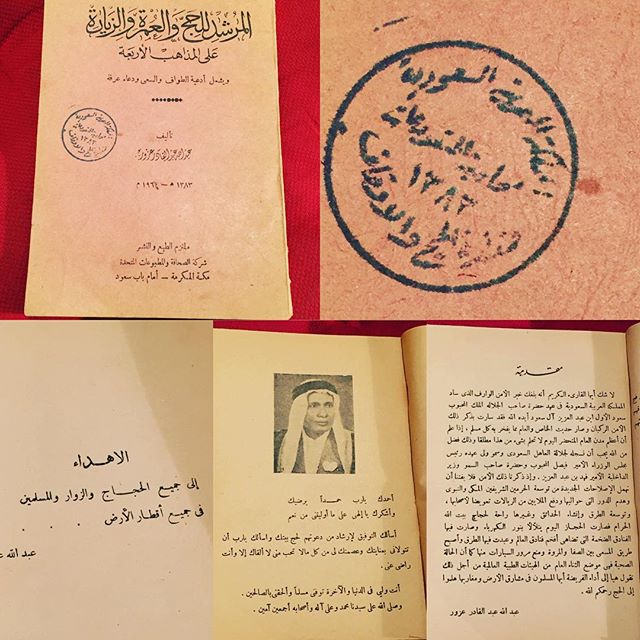 المرشد للحج والعمرة والزيارة
على المذاهب الأربعة
ويشمل أدعية الطواف والسعى ودعاء عرفة
تأليف
عبد الله عبد القادر عزوز
١٣٨٣ هـ - ١٩٦٤ م
ملتزم الطبع والنشر
شركة الصحافة والمطبوعات المتحدة
مكة المكرمة - أمام باب سعود
المملكة العربية السعودية
١٣٨٣
الحج والأوقاف
الاهداء
إلى جميع الحجاج والزوار والمسلمين
فى جميع أقطار الأرض . . . .
عبد الله
أحمدك يارب حمداً يرضيك
وأشكرك يا إلهى على ما أوليتنى من نعم
أسألك التوفيق لإرشاد من دعوتهم لحج بيتك وأسألك يارب أن
تتولانى بعنايتك وتعصمنى لى من كل مالا تحب حتى ألقاك وأنت
راض عنى .
أنت وليى فى الدنيا والآخرة توفنى مسلماً وألحقنى بالصالحين .
وصلى الله على سيدنا محمد وعلى آله وأصحابه أجمعين آمين .
مقدمة
لا شك أيها القارىء الكريم أنه بلغك خبر الأمن الوارف الذى ساد
المملكة العربية السعودية فى عهد حضرة صاحب الجلالة الملك المحبوب
سعود الأول ابن عبد العزيز آل سعود أيده الله فقد سارت بذكر ذلك
الأمن الركبان وصار حديث الخاص والعام مما يفخر به كل مسلم . إذا علم
أن أعظم مدن العالم المتحضر اليوم لا تحلم بشىء من هذا مطلقا وذلك فضل
من الله يجب أن نسجله لجلالة العاهل السعودى وسمو ولى عهده رئيس
مجلس الوزراء الأمير فيصل المحبوب وحضرة صاحب السمو وزير
الداخلية الأمير فهد بن عبد العزيز . وإذ ذكرنا ذلك الأمن فلا يفتنا أن
نهمل الإصلاحات الجديدة من توسعة الحرمين الشريفين المكى والنبوى
وهدم الدور التى حواليها ودفع الملايين من الريالات تعويضا لأصحابها ،
وفتح الطرق وإنشاء الحدائق وغيرها راحة لحجاج بيت الله
الحرام فصارت الحجاز اليوم يتلألأ بنور الكهرباء وصارت فيها
الفنادق الضخمة التى تضاهى أفخم فنادق العالم وعبدت فيها الطرق وأصبح
طريق المسعى بين الصفا والمروة ومنع مرور السيارات منها كما أن الحالة
الصحية فيه موضع الثناء العام من الهيئات الطبية العالمية من أجل ذلك
نقول هيا إلى أداء الفريضة أيها المسلمون فى مشارق الأرض ومغاربها هلموا
إلى الحج رحمكم الله .
عبد الله عبد القادر عزوز